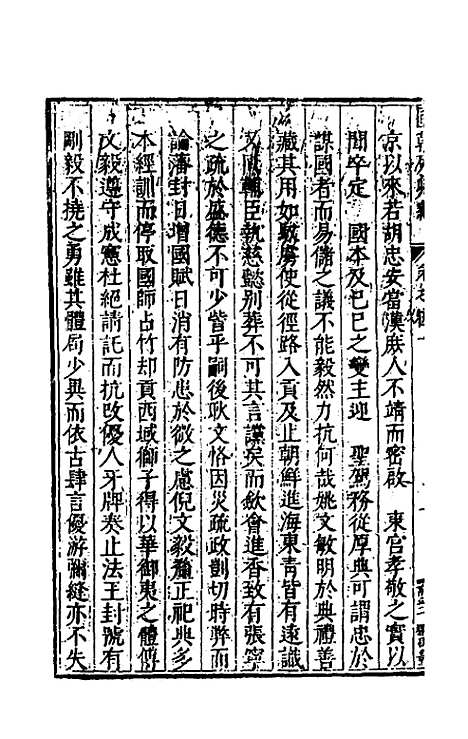 京以來若胡忠安當漢庶人不靖而密啟　東宮孝敬之實以
聞卒定　國本及巳巳之變主迎　聖駕務從厚典可謂忠於
謀國者而易儲之議不能毅然力抗何哉姚文敏明於典禮善
藏其用如駁虜使從徑路入貢及止朝鮮進海東青皆有遠識
又風輔臣執慈懿別葬不可其言讜矣而飲會進香致有張寧
之疏於盛德不可少訾乎嗣後耿文恪因災疏政剴切時弊而
論藩封日增國賦日消有防患於微之慮倪文毅釐正祀典多
本經訓而停取國師占竹却貢西域獅子得以華御夷之體傅
文毅遵守成憲杜絕請託而抗改優人牙牌奏止法王封號有
剛毅不撓之勇雖其體局少異而依古肆言優游彌縫亦不失